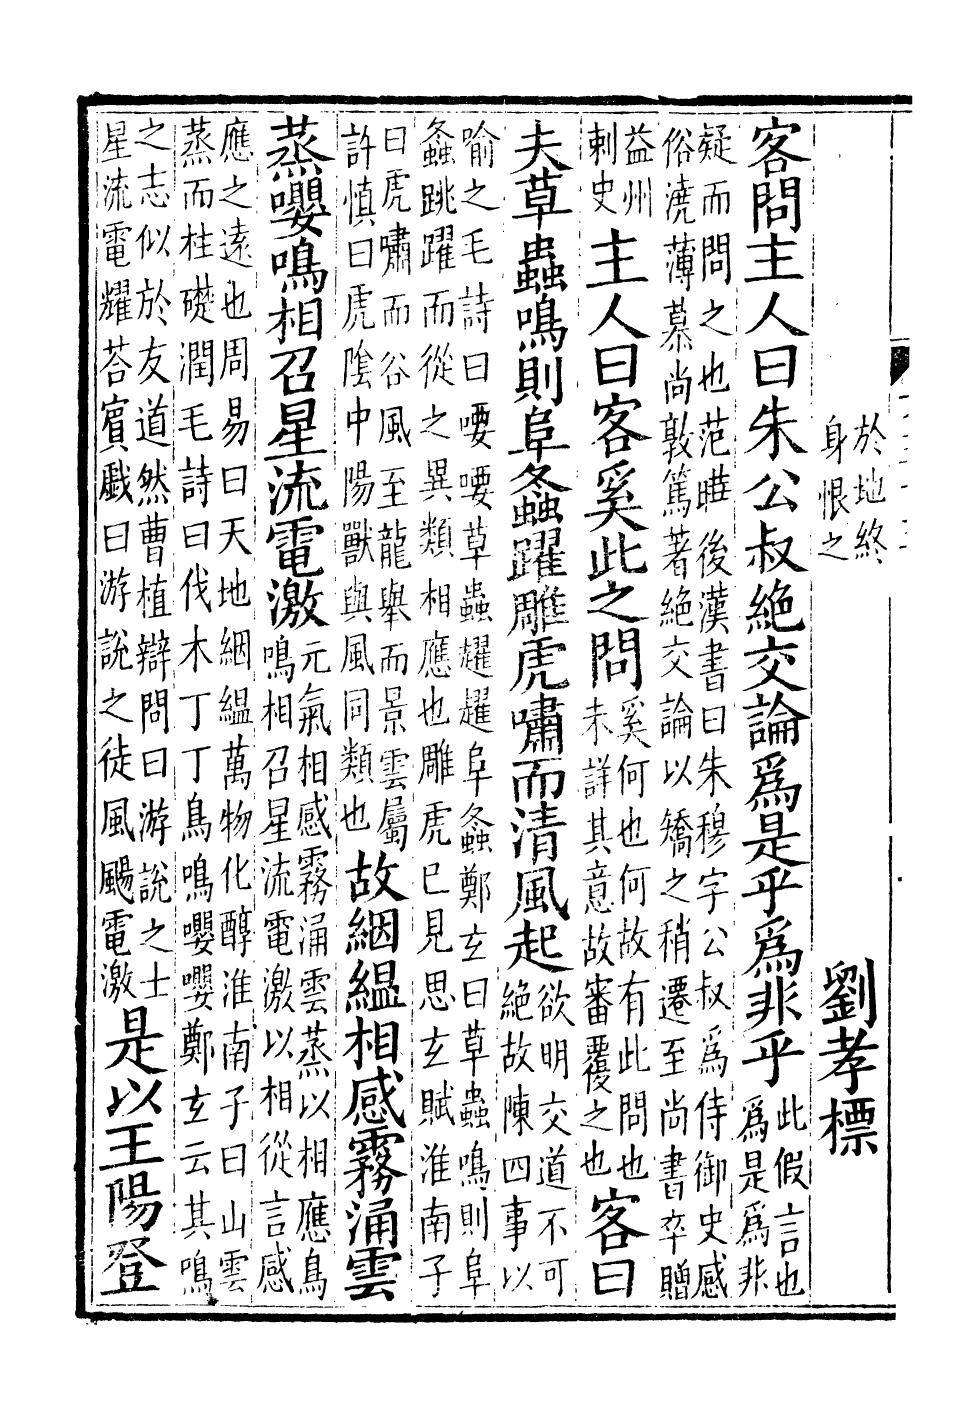 於地終
身恨之
劉孝標
客問主人曰朱公叔絶交論爲是乎爲非乎此假言也
爲是爲非
疑而問之也范曄後漢書曰朱穆字公叔爲侍御史感
俗澆薄慕尚敦篤著絶交論以矯之稍遷至尚書卒贈
益州
刺史主人曰客奚此之問奚何也何故有此問也
未詳其意故審覆之也客曰
夫草蟲鳴則阜螽躍雕虎嘯而清風起欲明交道不可
絶故陳四事以
喻之毛詩曰喓喓草蟲趯趯阜螽鄭玄曰草蟲鳴則阜
螽跳躍而從之異類相應也雕虎已見思玄賦淮南子
曰虎嘯而谷風至龍舉而景雲屬
許慎曰虎陰中陽獸與風同類也故絪縕相感霧涌雲
蒸嚶鳴相召星流電激元氣相感霧涌雲蒸以相應鳥
鳴相召星流電激以相從言感
應之遠也周易曰天地絪縕萬物化醇淮南子曰山雲
蒸而柱礎潤毛詩曰伐木丁丁鳥鳴嚶嚶鄭玄云其鳴
之志似於友道然曹植辯問曰游說之士
星流電耀荅賓戲曰游說之徒風颺電激是以王陽登